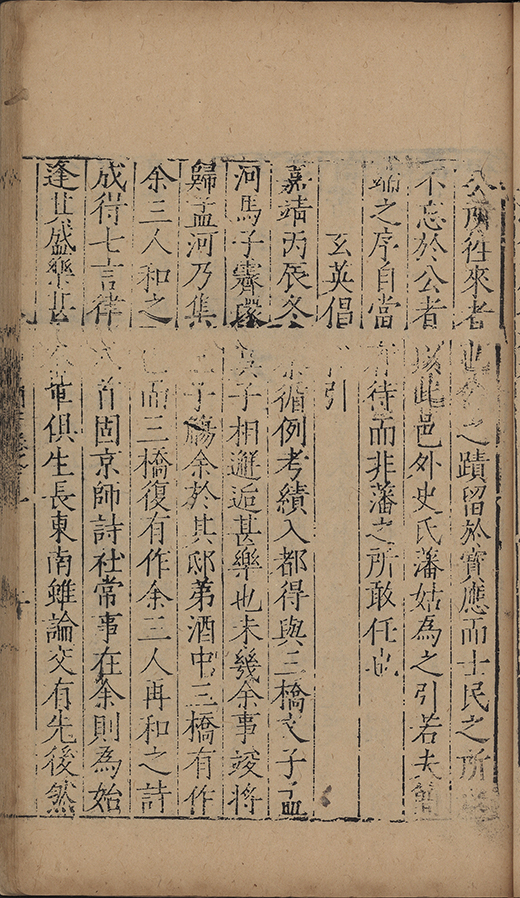 公所往來者此公之蹟留於寶應而士民之所
不忘於公者以此邑外史氏藩姑為之引若夫簡
端之序自當有待而非藩之所敢任也
玄英倡引
嘉靖丙辰冬循例考績入都得與三橋文子孟
河馬子霽寰吳子相邂逅甚樂也未幾余事竣將
歸孟河乃集子觴余於其邸第酒中三橋有作
余三人和之而三橋復有作余三人再和之詩
成得七言律首固京師詩社常事在余則為始
逢其盛樂其重俱生長東南雖論交有先後然